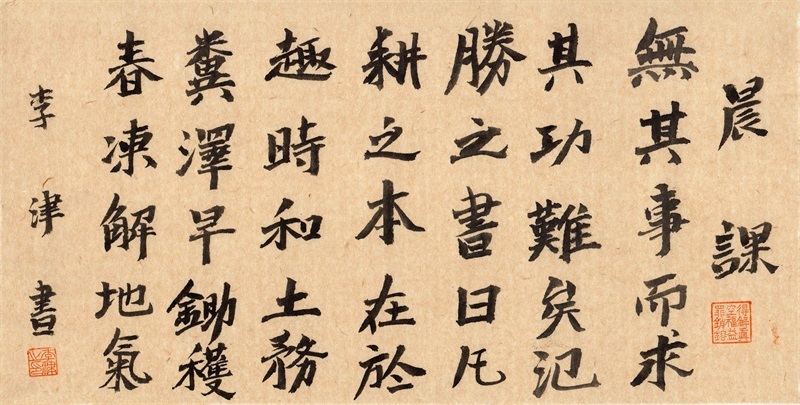 晨課
無其事而求
其功難矣氾
勝之書曰凡
耕之本在於
趣時和土務
糞澤早鋤穫
春凍解地氣
李津書